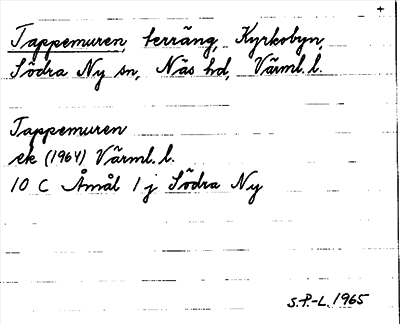 +
Tappemuren, terräng, Kyrkobyn,
Södra Ny sn, Näs hd, Värml. l.
Tappemuren
ek (1964) Värml. l.
10 C Åmål 1 j Södra Ny
S.P.-L. 1965